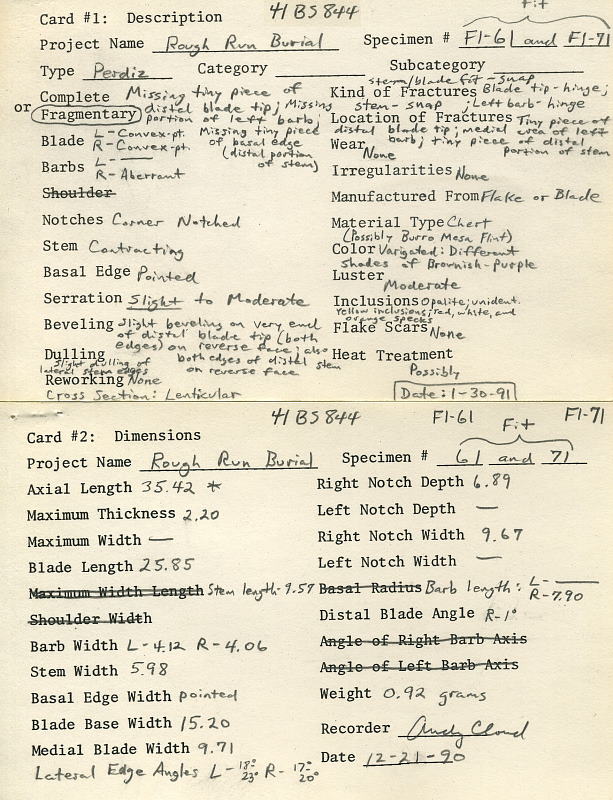 41 BS 844
Fit
Card #1: Description
Project Name Rough Run Burial Specimen # F1-61 and F1-71
Type Perdiz Category Subcategory
Complete or Fragmentary Missing tiny piece of distal blade tip; Missing portion of left barb; Missing tiny piece of basal edge (distal portion of stem)
Blade L - Convex-pt. R - Convex-pt.
Barbs L - — R - Aberrant
Shoulder
Notches Corner Notched
Stem Contracting
Basal Edge Pointed
Serration Slight to Moderate
Beveling Slight beveling on very end of distal blade tip (both edges) on reverse face; also both edges of distal stem on reverse face
Dulling Slight dulling of lateral stem edges
Reworking None
Cross Section: Lenticular
Kind of Fractures Blade tip-hinge; stem/blade fit - snap stem-snap; Left barb-hinge
Location of Fractures Tiny piece of distal blade tip; medial area of left barb; tiny piece of distal portion of stem
Wear None
Irregularities None
Manufactured From Flake or Blade
Material Type Chert
(Possibly Burro Mesa Flint)
Color Varigated: Different
shades of Brownish-purple
Luster Moderate
Inclusions Opalite; unident.
Yellow inclusions; red, white, and
orange specks
Flake Scars None
Heat Treatment
Possibly
Date: 1-30-91
41 BS 844 F1-61 Fit F1-71
Card #2: Dimensions
Project Name Rough Run Burial Specimen # 61 and 71
Axial Length 35.42 *
Maximum Thickness 2.20
Maximum Width —
Blade Length 25.85
Maximum Width Length Stem length - 9.57
Shoulder Width
Barb Width L-4.12 R-4.06
Stem Width 5.98
Basal Edge Width pointed
Blade Base Width 15.20
Medial Blade Width 9.71
Lateral Edge Angles L - 18° 23° R - 17° 20°
Right Notch Depth 6.89
Left Notch Depth —
Right Notch Width 9.67
Left Notch Width —
Basal Radius Barb length: L - — R - 7.90
Distal Blade Angle R-1°
Angle of Right Barb Axis
Angle of Left Barb Axis
Weight 0.92 grams
Recorder Andy Cloud
Date 12-21-90